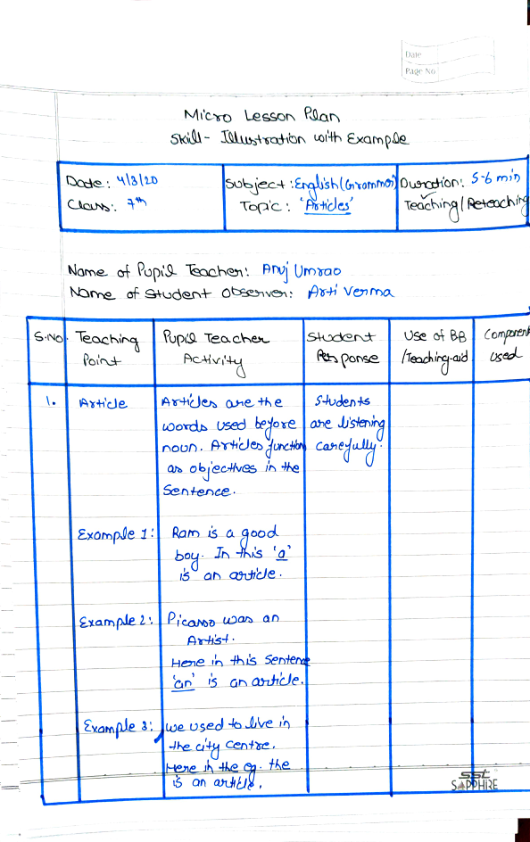 Date
Page No
Micro Lesson Plan
Skill- Illustration with Example
Date: 4/3/20
Class: 7th
Subject: English (Grammar)
Topic: 'Articles'
Duration: 5-6 min
Teaching/Reteaching
Name of Pupil Teacher: Anuj Umrao
Name of Student Observer: Arti Verma
S.No.
Teaching
Point
Pupil Teacher
Activity
Student
Response
Use of BB
/Teaching-aid
Component
used
1.
Article
Articles are the
words used before
noun. Articles function
as objectives in the
Sentence.
Students
are listening
carefully.
Example 1:
Ram is a good
boy. In this 'a'
is an article.
Example 2:
Picasso was an
Artist.
Here in this Sentence
'an' is an article.
Example 3:
we used to live in
the city centre.
Here in the eg. the
is an article.
SSL
SAPPHIRE